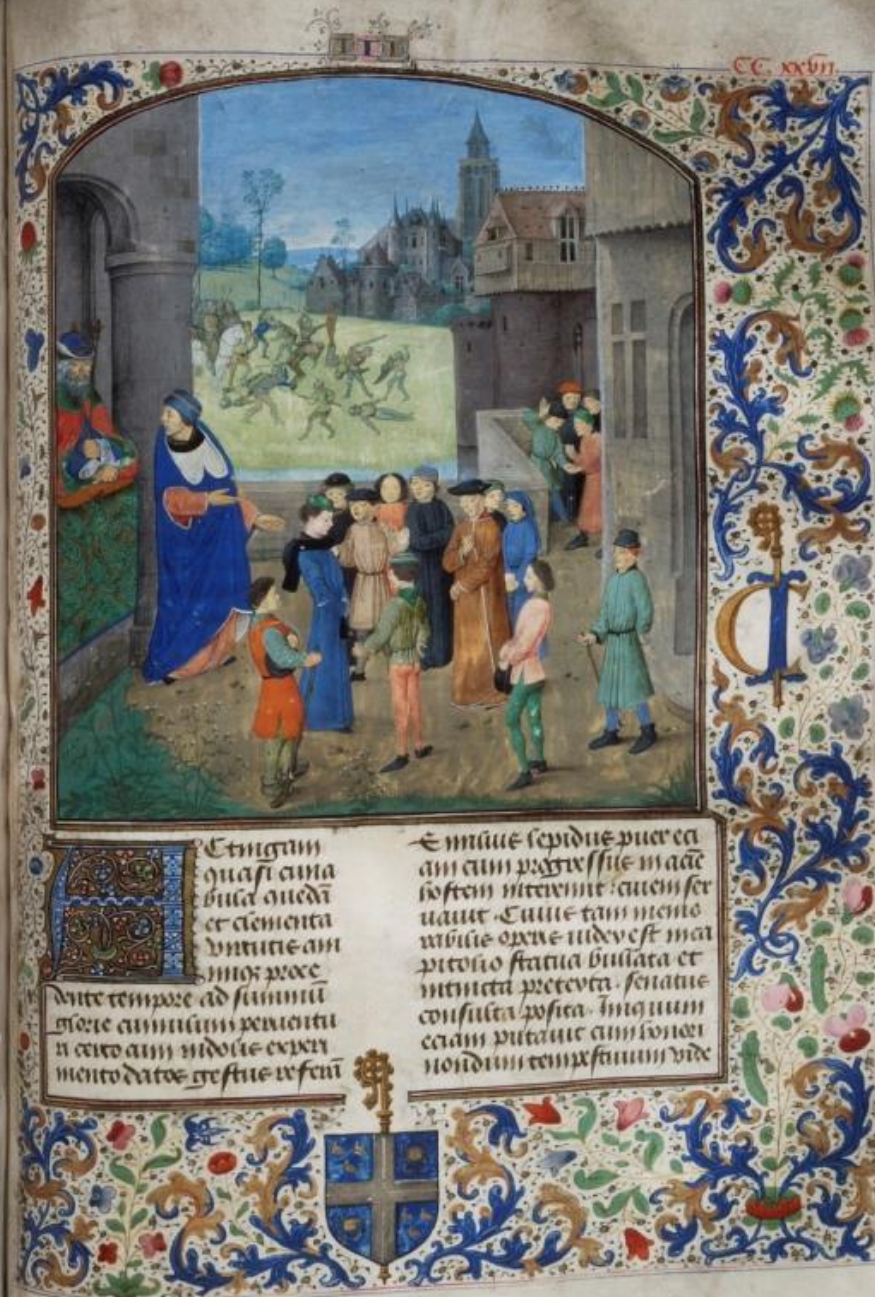 III
CC. xxvii.
Attingam
quasi cuna
bula quedā
et elementa
virtutis ani
miqꝫ proce
dente tempore ad summū
glorie cumulum peruentu
ri certo cum indolis experi
mento datos gestus referā
Emilius lepidus puer eci
am cum progressus in aciē
hostem interemit: ciuem ser
uauit. Cuius tam memo
rabilis operis iudex est in ca
pitolio statua bullata et
incincta pretexta. senatus
consulta posita. Iniquum
eciam putauit eum honori
nondum tempestiuum vide